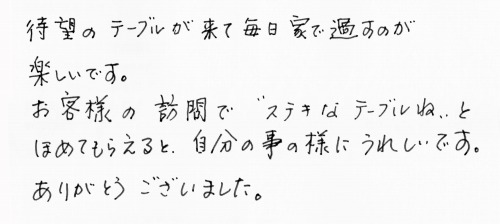 待望のテーブルが来て毎日家で過すのが
楽しいです。
お客様の訪問で〝ステキなテーブルね〟と
ほめてもらえると、自分の事の様にうれしいです。
ありがとうございました。